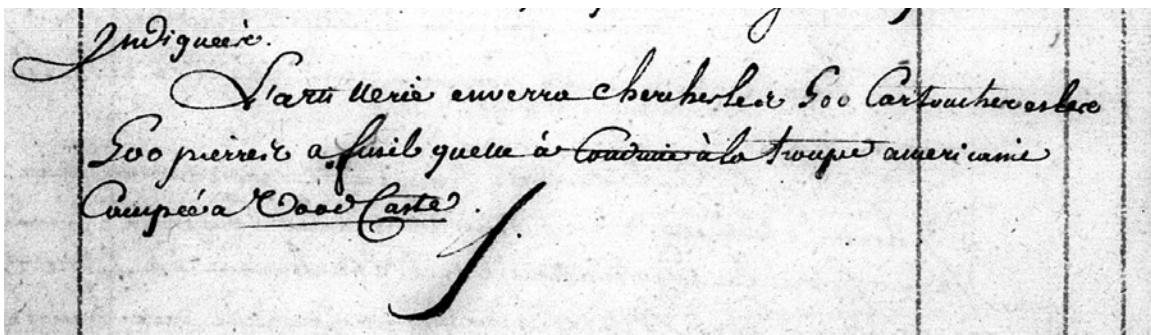 Indiquées.
L'artillerie enverra chercher les 500 Cartouches et les
500 pierres a fusil quelle à à la troupe americaine
Campée a Wood Caste.